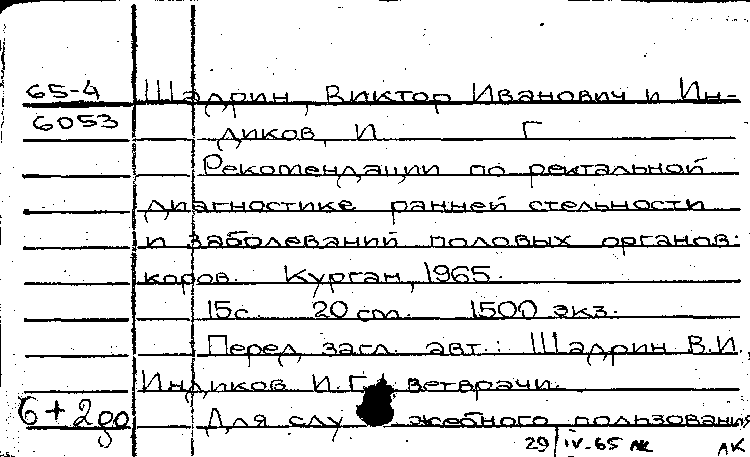 65-4 Шадрин, Виктор Иванович и Ин-
6053 диков, И Г
Рекомендации по ректальной
диагностике ранней стельности
и заболеваний половых органов
коров. Курган, 1965.
15 с. 20 cm. 1500 экз.
Перед загл. авт.: Шадрин В.И.,
Индиков И.Г., ветврачи.
6+2до Для служебного пользования
29/IV-65 лк ЛК